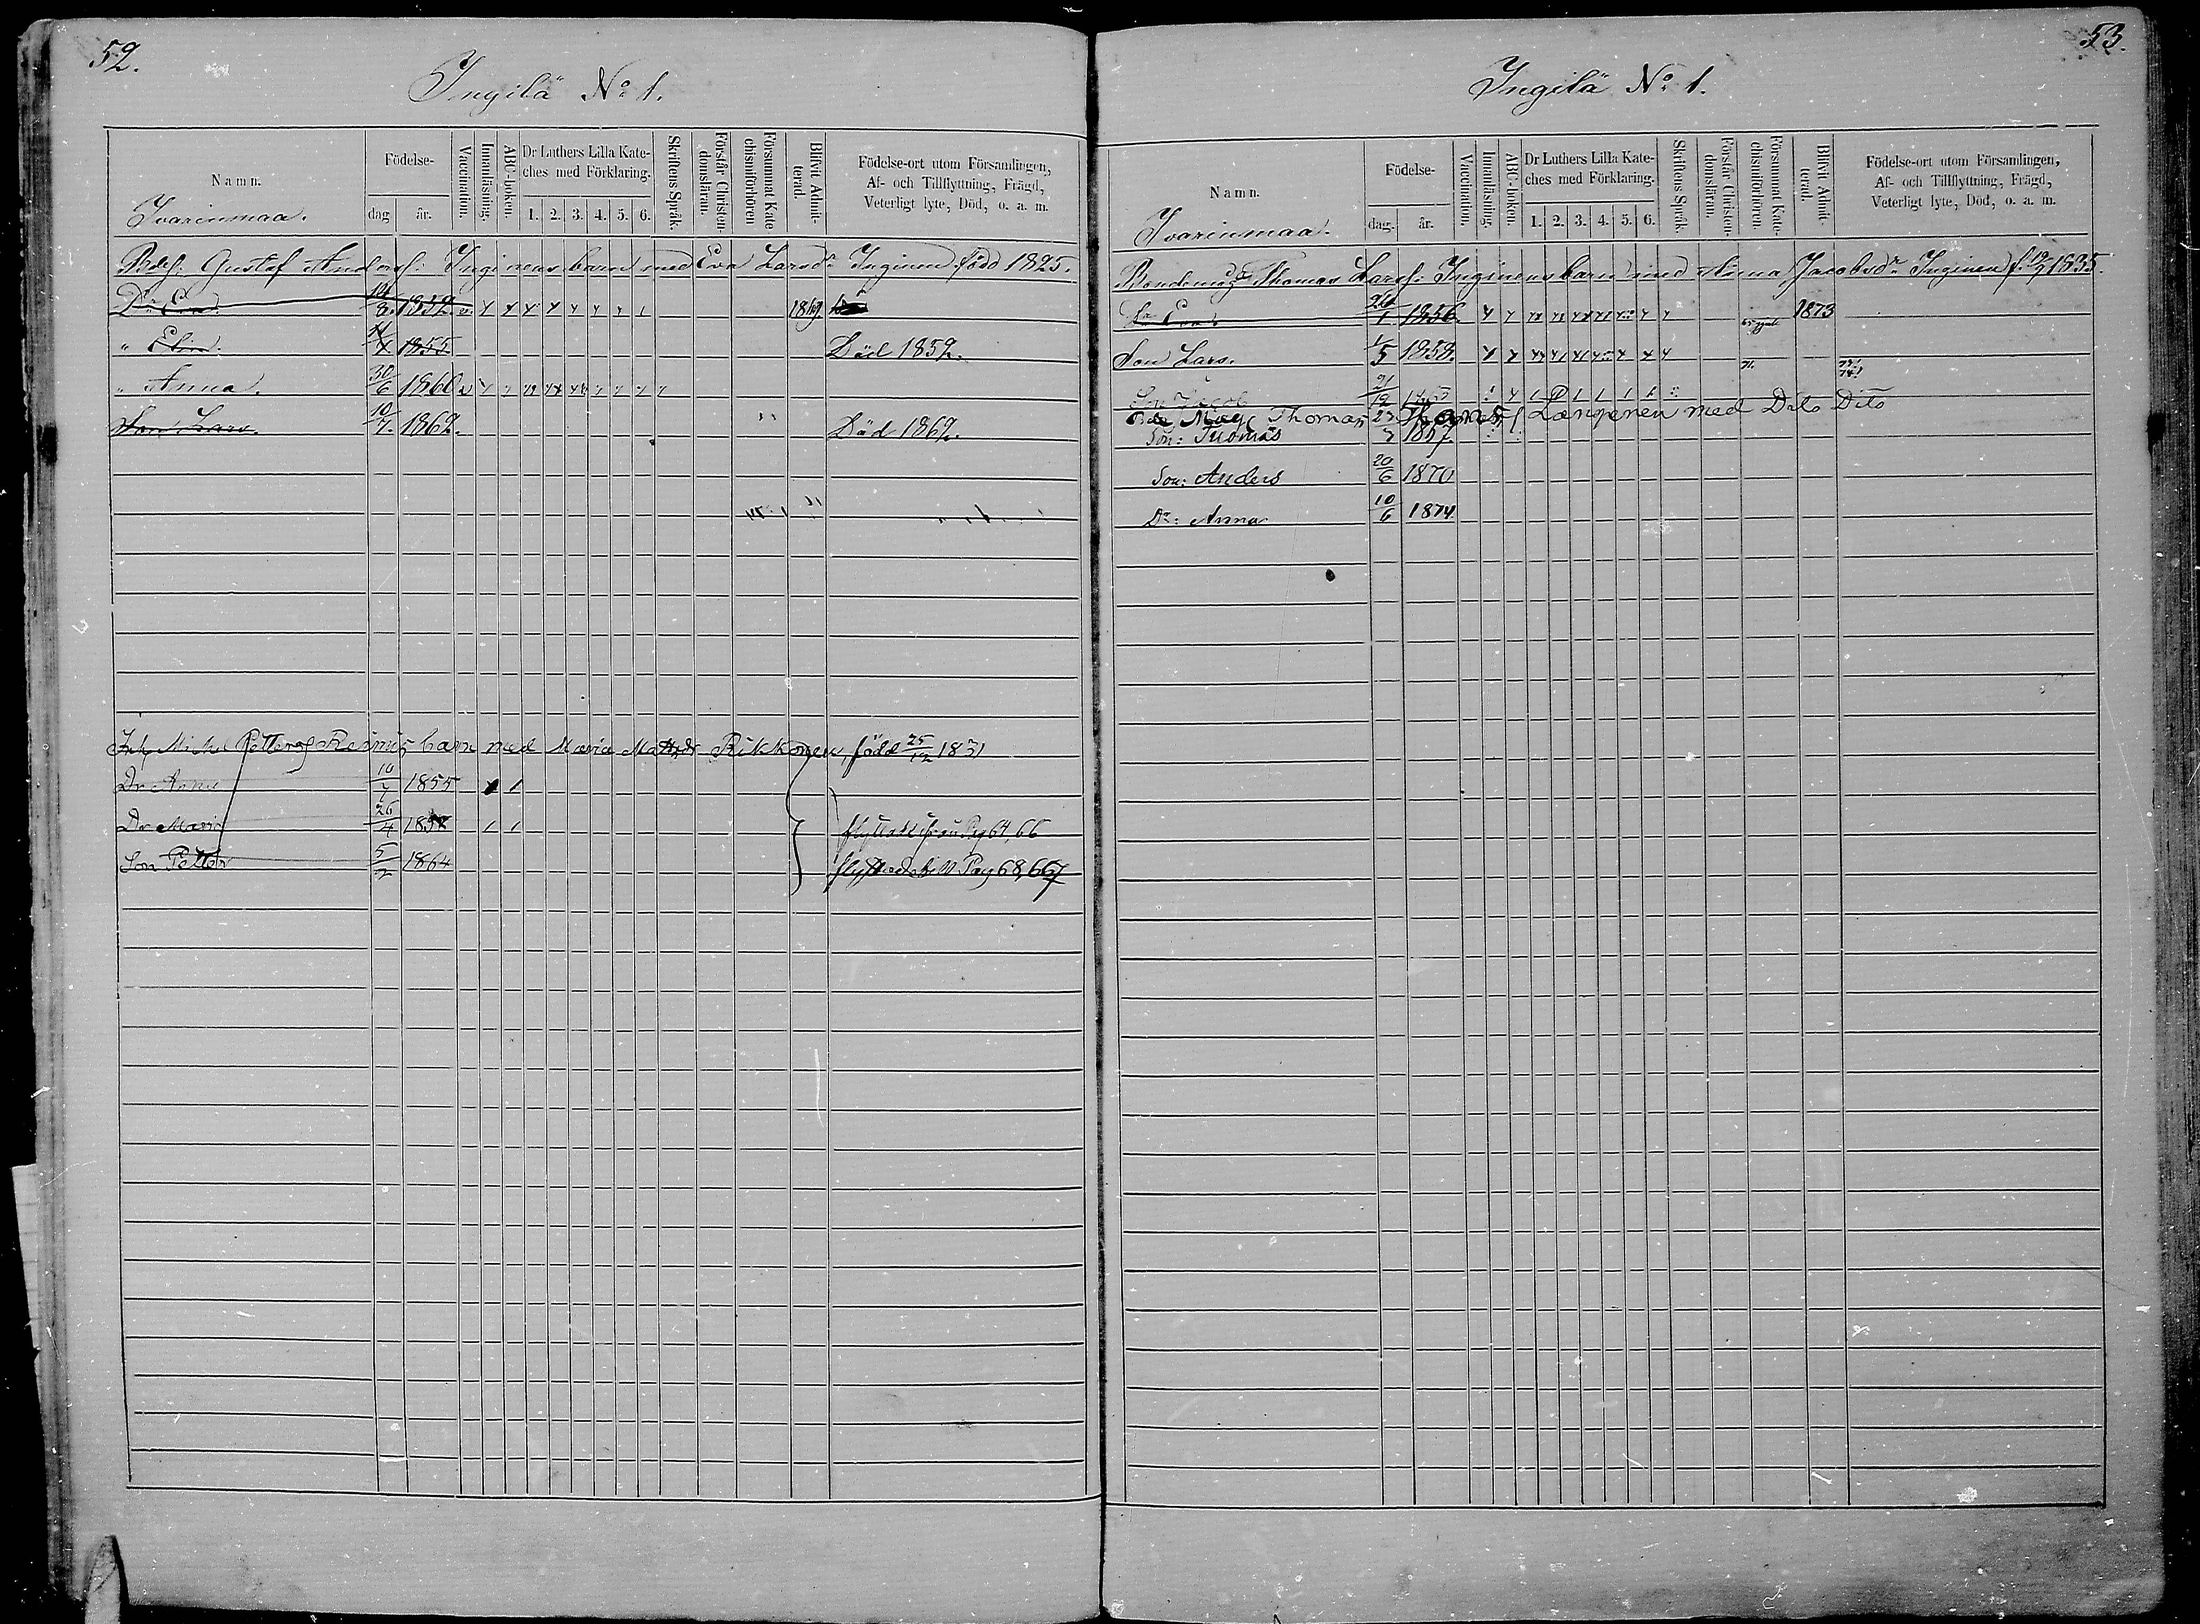 52.
Ingilä No 1.
Namn.
Ivarinmaa.
Födelse-
dag
år.
Vaccination.
Innanläsning.
ABC-boken.
Dr Luthers Lilla Kate-
ches med Förklaring.
1. 2. 3. 4. 5. 6.
Skriftens Språk.
Förstår Christen-
domsläran.
Försummat Kate
chismiförhören
Blifvit Admit-
terad.
Födelse-ort utom Församlingen,
Af- och Tillflyttning, Frägd,
Veterligt lyte, Död, o. a. m.
Bdes: Gustaf Andersf: Inginens barn med Eva Larsdr Inginen född 1825.
Dr Eva. 14/3. 1852. 1869.
" Elin. 1855. Död 1859.
" Anna. 30/6 1860
Son Lars. 10/7. 1862. Död 1862.
Inh Michel Pettersf Remus barn med Maria Mattsdr Rikkonen, född 25/12 1831
Dr Anna 10/7 1855
Dr Maria 26/4 185 flyttat från Pag 64,66
Son Petter 5/2 1864 flyttade till Pag 68,667
53.
Ingilä No 1.
Namn.
Ivarinmaa.
Födelse-
dag.
år.
Vaccination.
Innanläsning.
ABC-boken.
Dr Luthers Lilla Kate-
ches med Förklaring.
1. 2. 3. 4. 5. 6.
Skriftens Språk.
Förstår Christen-
domsläran.
Försummat Kate-
chismiförhören.
Blifvit Admit-
terad.
Födelse-ort utom Församlingen,
Af- och Tillflyttning, Frägd,
Veterligt lyte, Död, o. a. m.
Bondemåg Thomas Larsf: Inginens barn med Anna Jacobsdr Inginen f. 1835.
Dr Eva. 1856. 1873
Son Lars. 1/5 1858. 71.
Son Jacob 21/12
Måg Thomas Thomasf Längenen med Dito Dito
Son: Thomas 23/7 1867
Son: Anders 20/6 1870
Dr: Anna 10/6 1874